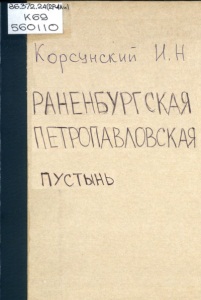 86.372.24(2Рян)
К69
560110
Корсунский И.Н
РАНЕНБУРГСКАЯ
ПЕТРОПАВЛОВСКАЯ
ПУСТЫНЬ